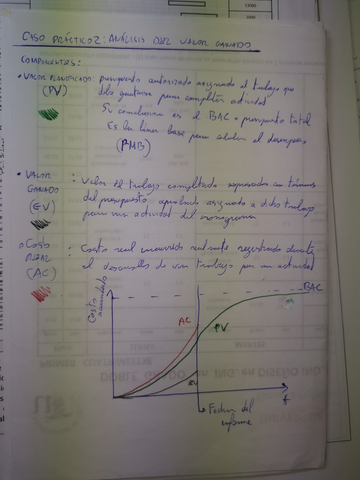 CASO PRÁCTICO 2: ANÁLISIS DEL VALOR GANADO
COMPONENTES:
• VALOR PLANIFICADO: presupuesto autorizado asignado al trabajo que
(PV) debe para completar actividad
Su conclusion es el BAC = presupuesto total
Es la linea base para el desempeño
(PMB)
• VALOR GANADO : Valor del trabajo completado expresado en términos
(EV) del presupuesto aprobado asignado a dicho trabajo
para una actividad del cronograma
• COSTO REAL : Costo real incurrido realmente registrado durante
(AC) el desarrollo de un trabajo por una actividad
Costo acumulado
BAC
AC
PV
EV
t
Fecha del
informe
PRIMER CUATRIMESTRE
DOBLE EN ING. en DISEÑO IND